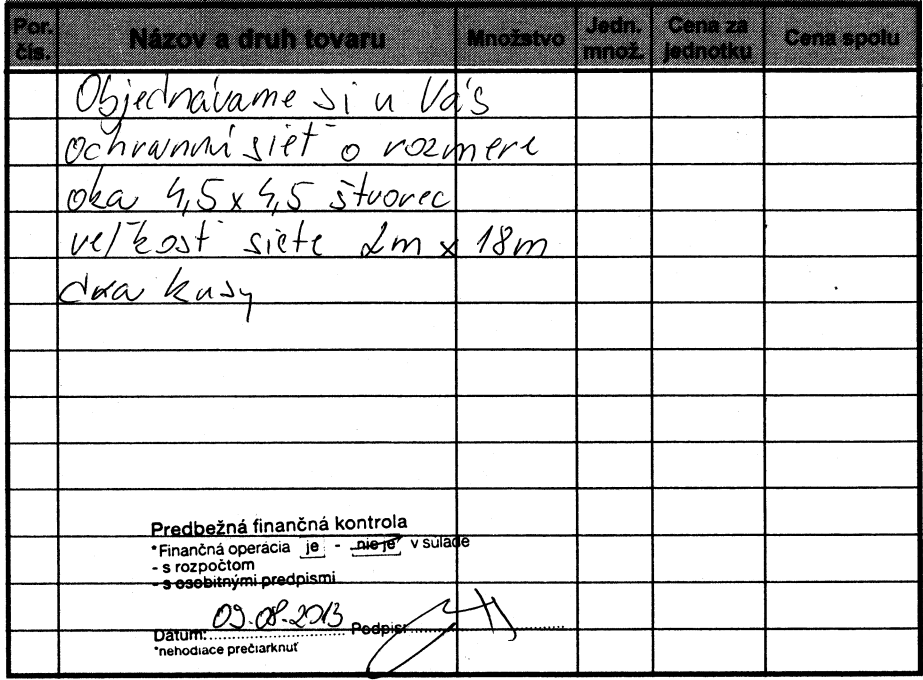 Por. čís. Názov a druh tovaru Množstvo Jedn. množ. Cena za jednotku Cena spolu
Objednávame si u Vás
ochrannú sieť o rozmere
oka 4,5 x 4,5 štvorec
veľkosť siete 2m x 18m
dva kusy
Predbežná finančná kontrola
*Finančná operácia je - nie je v súlade
- s rozpočtom
- s osobitnými predpismi
Dátum: 09.08.2013 Podpis:
*nehodiace prečiarknuť